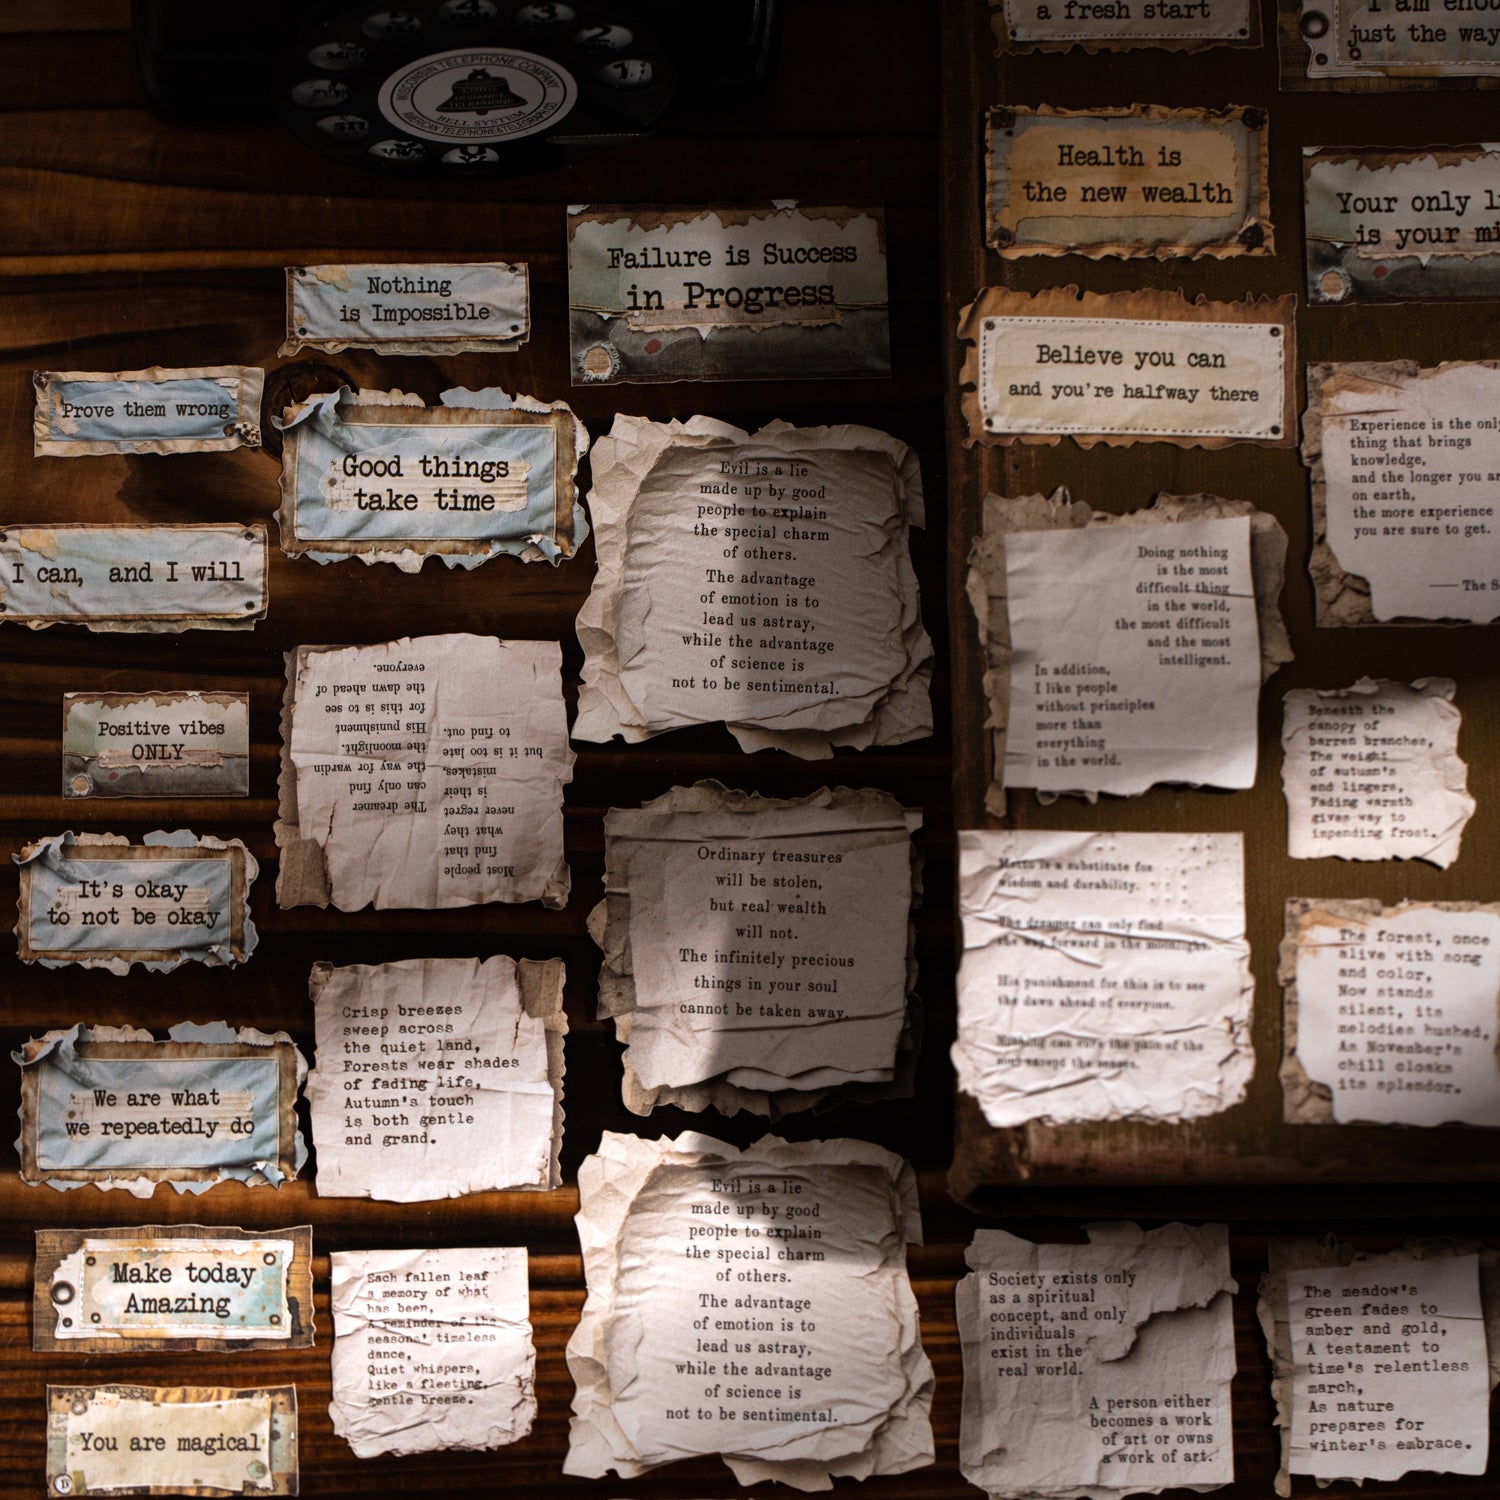 WISCONSIN TELEPHONE COMPANY
LONG
DISTANCE
TELEPHONE
BELL SYSTEM
AMERICAN TELEPHONE & TELEGRAPH CO.
a fresh start
I am enou
just the way
Health is
the new wealth
Your only li
is your mi
Failure is Success
in Progress
Nothing
is Impossible
Believe you can
and you're halfway there
Prove them wrong
Good things
take time
I can, and I will
Experience is the only
thing that brings
knowledge,
and the longer you ar
on earth,
the more experience
you are sure to get.
—— The S
Evil is a lie
made up by good
people to explain
the special charm
of others.
The advantage
of emotion is to
lead us astray,
while the advantage
of science is
not to be sentimental.
Doing nothing
is the most
difficult thing
in the world,
the most difficult
and the most
intelligent.
In addition,
I like people
without principles
more than
everything
in the world.
Most people
find that
what they
never regret
is their
mistakes,
but it is too late
to find out.
The dreamer
can only find
the way for wardin
the moonlight.
His punishment
for this is to see
the dawn ahead of
everyone.
Positive vibes
ONLY
Beneath the
canopy of
barren branches,
The weight
of autumn's
end lingers,
Fading warmth
gives way to
impending frost.
It's okay
to not be okay
Ordinary treasures
will be stolen,
but real wealth
will not.
The infinitely precious
things in your soul
cannot be taken away.
Metto is a substitute for
wisdom and durability.
The dreamer can only find
the way forward in the moonlight.
His punishment for this is to see
the dawn ahead of everyone.
Nothing can cure the pain of the
soul except the senses.
The forest, once
alive with song
and color,
Now stands
silent, its
melodies hushed,
As November's
chill cloaks
its splendor.
Crisp breezes
sweep across
the quiet land,
Forests wear shades
of fading life,
Autumn's touch
is both gentle
and grand.
We are what
we repeatedly do
Make today
Amazing
Each fallen leaf
a memory of what
has been,
A reminder of the
seasons' timeless
dance,
Quiet whispers,
like a fleeting,
gentle breeze.
Evil is a lie
made up by good
people to explain
the special charm
of others.
The advantage
of emotion is to
lead us astray,
while the advantage
of science is
not to be sentimental.
Society exists only
as a spiritual
concept, and only
individuals
exist in the
real world.
A person either
becomes a work
of art or owns
a work of art.
The meadow's
green fades to
amber and gold,
A testament to
time's relentless
march,
As nature
prepares for
winter's embrace.
You are magical